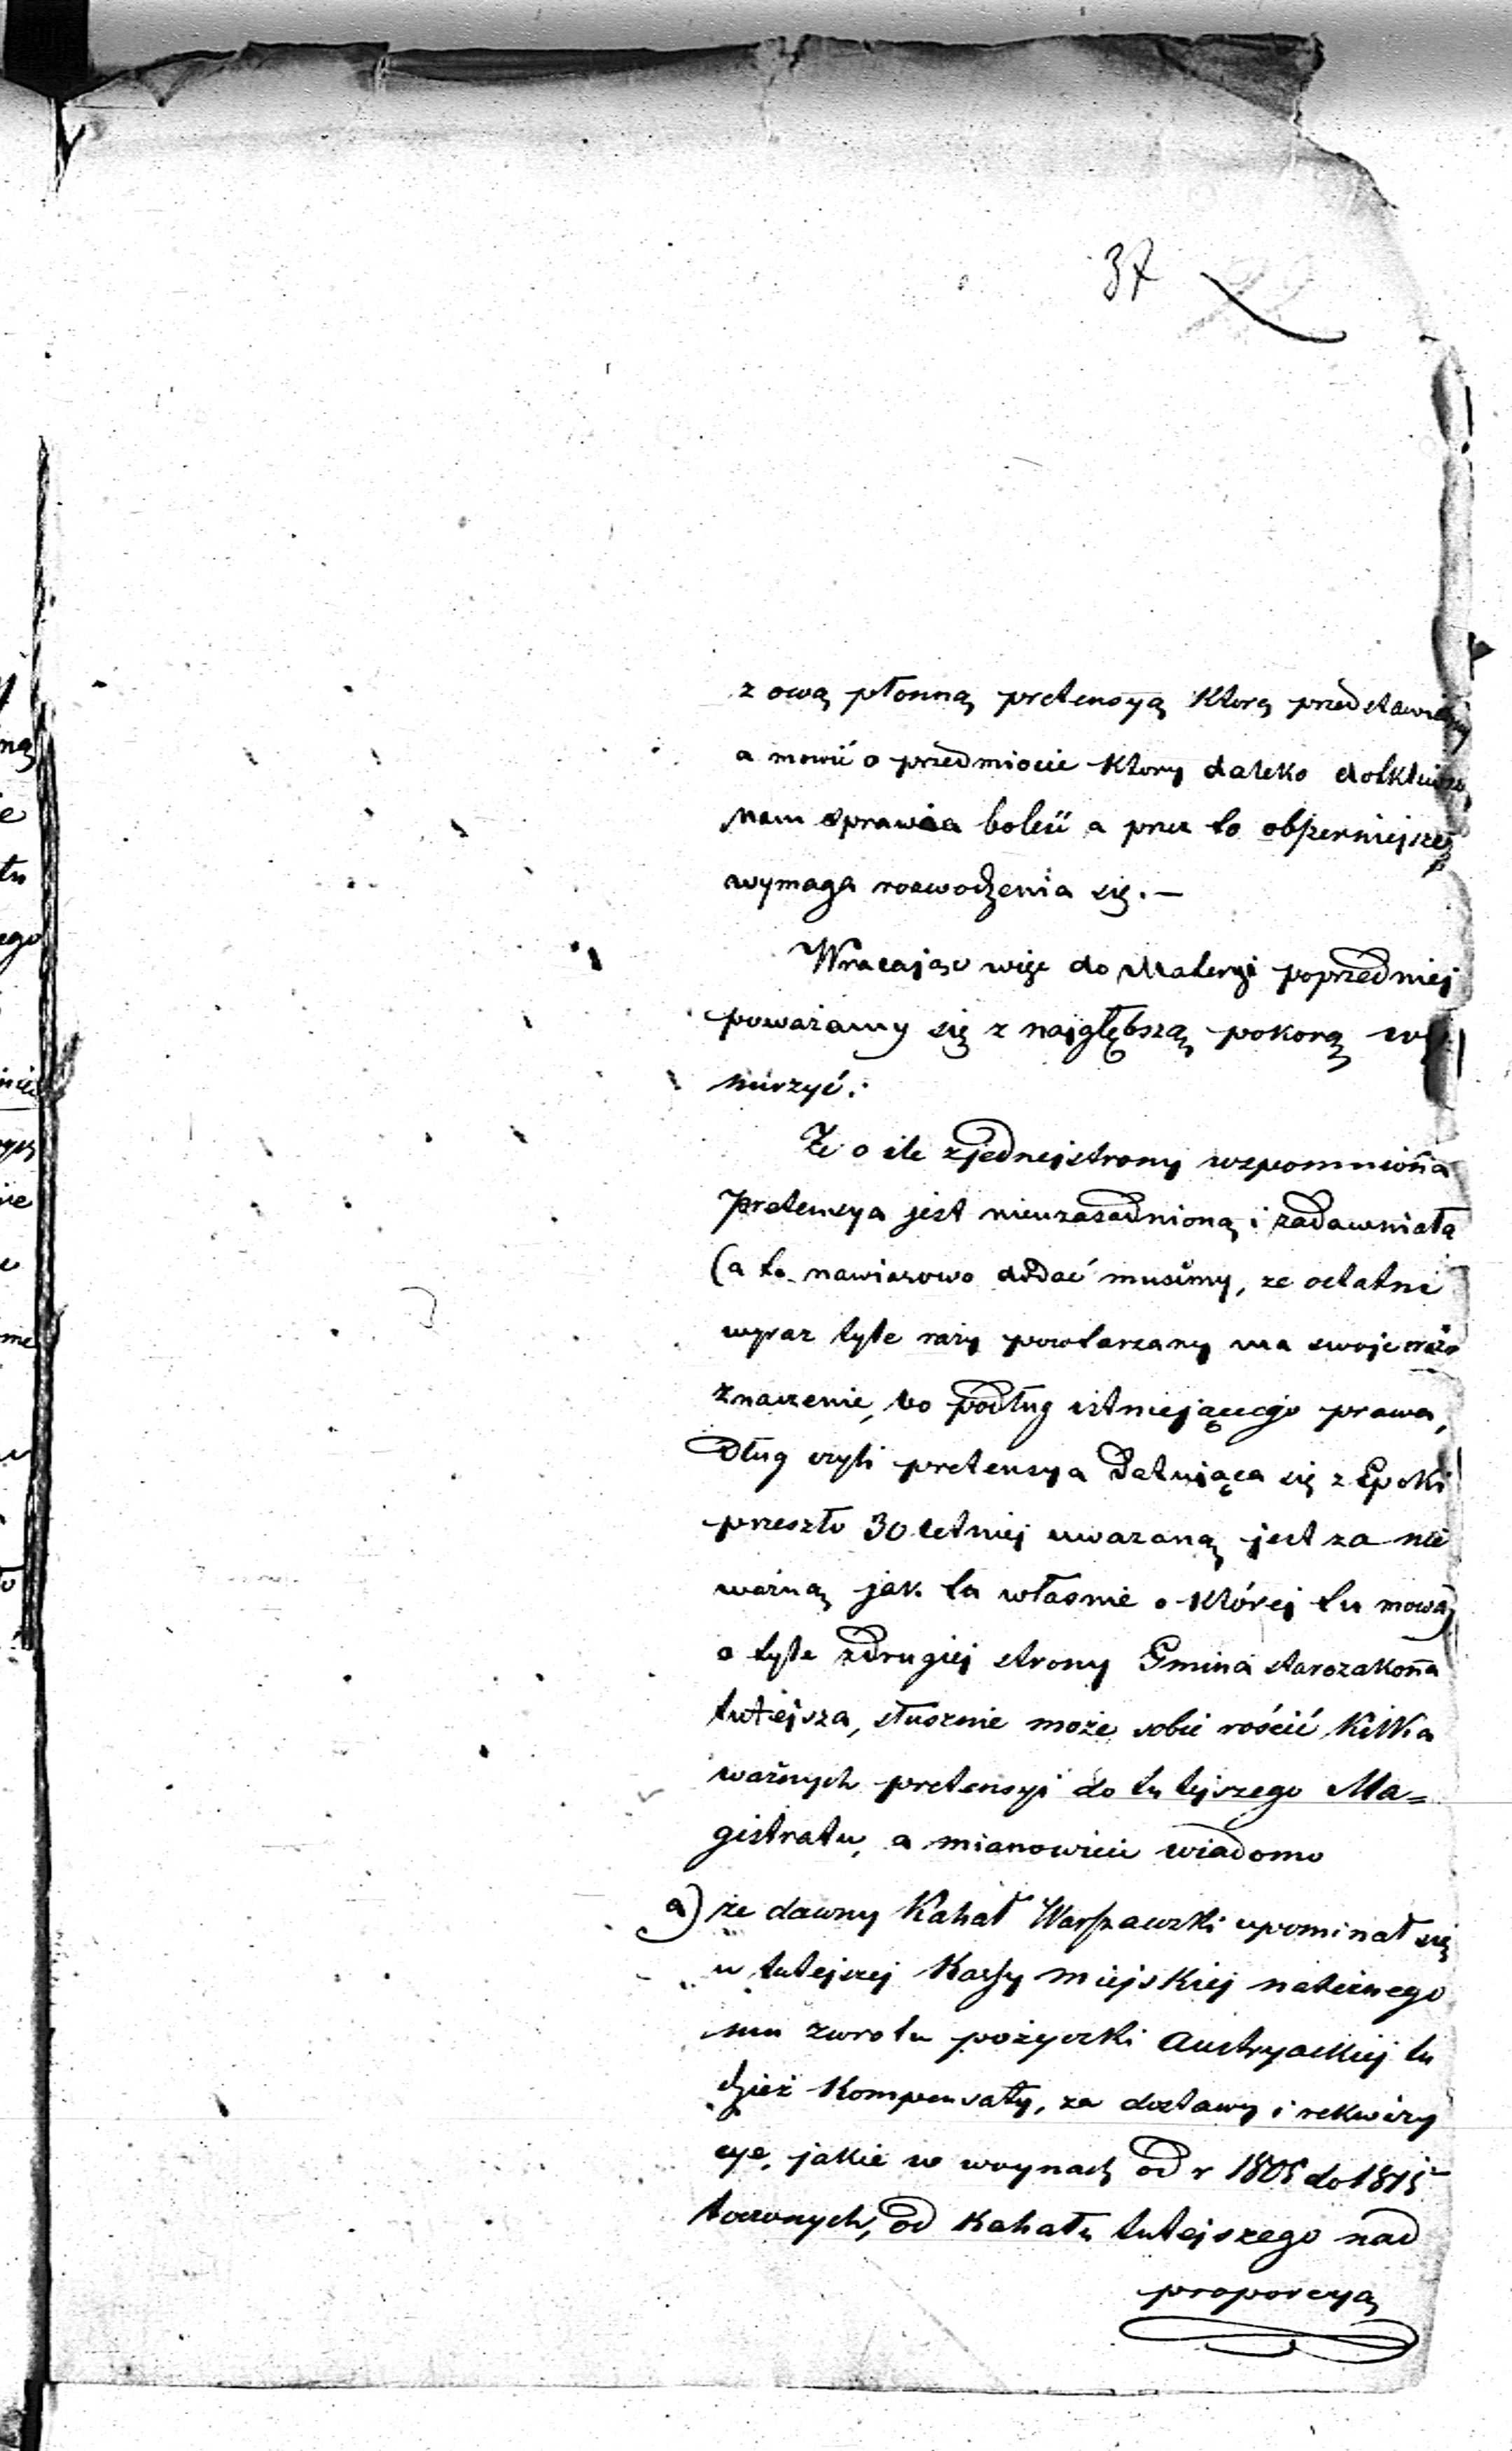 37
z ową płonną pretensyą którą
a mowić o przedmiocie który daleko
nam sprawia boleść a przez to obszerniejszego
wymaga rozwodzenia się. —
Wracając więc do Materyi poprzedniej
poważamy się z najgłębszą pokorą wy
nurzyć:
Że o ile zjednej strony wspomniona
pretensya jest nieuzasadnioną i zadawniałą
(a tu nawiasowo dodać musimy, ze ostatni
wyraz tyle razy powtarzany ma swoje
znaczenie, bo podług istniejącego prawa,
Dług czyli pretensya Datująca się z Epoki
przeszło 30 letniej uwazaną jest za nie
ważną jak ta własnie o której tu mowa)
o tyle zdrugiej strony Gmina starozakoña
tutejsza, słusznie może sobie rościć kilka
ważnych pretensyi do tutejszego Ma=
gistratu, a mianowicie wiadomo
a) że dawny Kahał Warszawski upominał się
u tutejszej Kassy miejskiej należnego
mu zwrotu pożyczki Austryackiej tu
dzież Kompensaty, za dostawy i rekwizy
cye, jakie w woynach od r 1805 do 1815
toczonych, od Kahału tutejszego nad
proporcyą